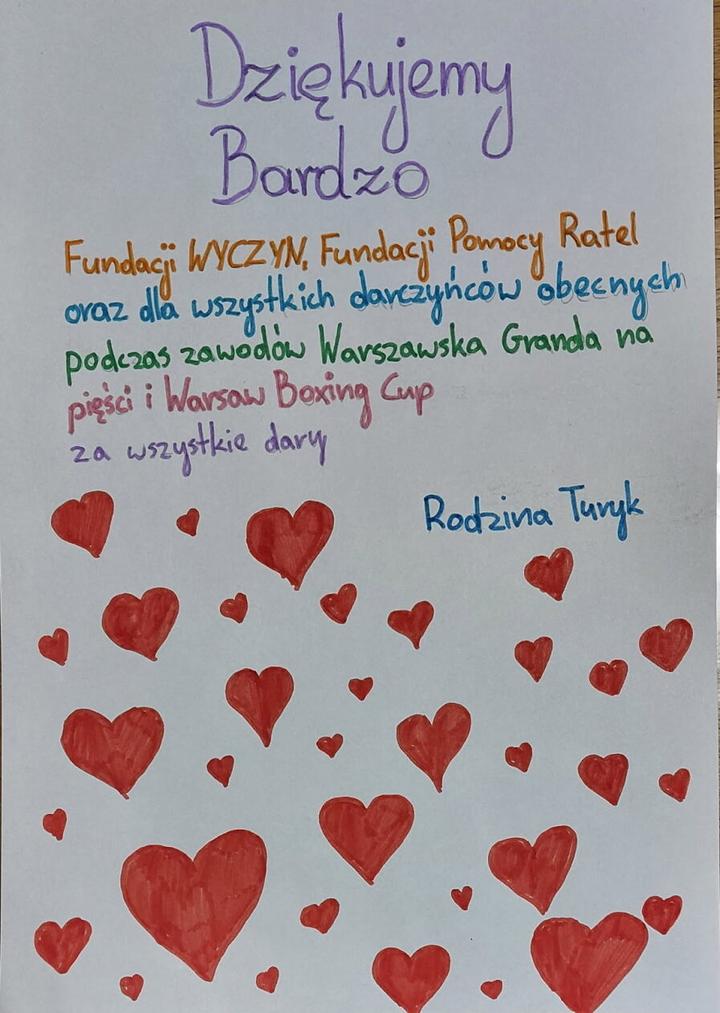 Dziękujemy
Bardzo
Fundacji WYCZYN, Fundacji Pomocy Ratel
oraz dla wszystkich darczyńców obecnych
podczas zawodów Warszawska Granda na
pięści i Warsaw Boxing Cup
za wszystkie dary
Rodzina Turyk